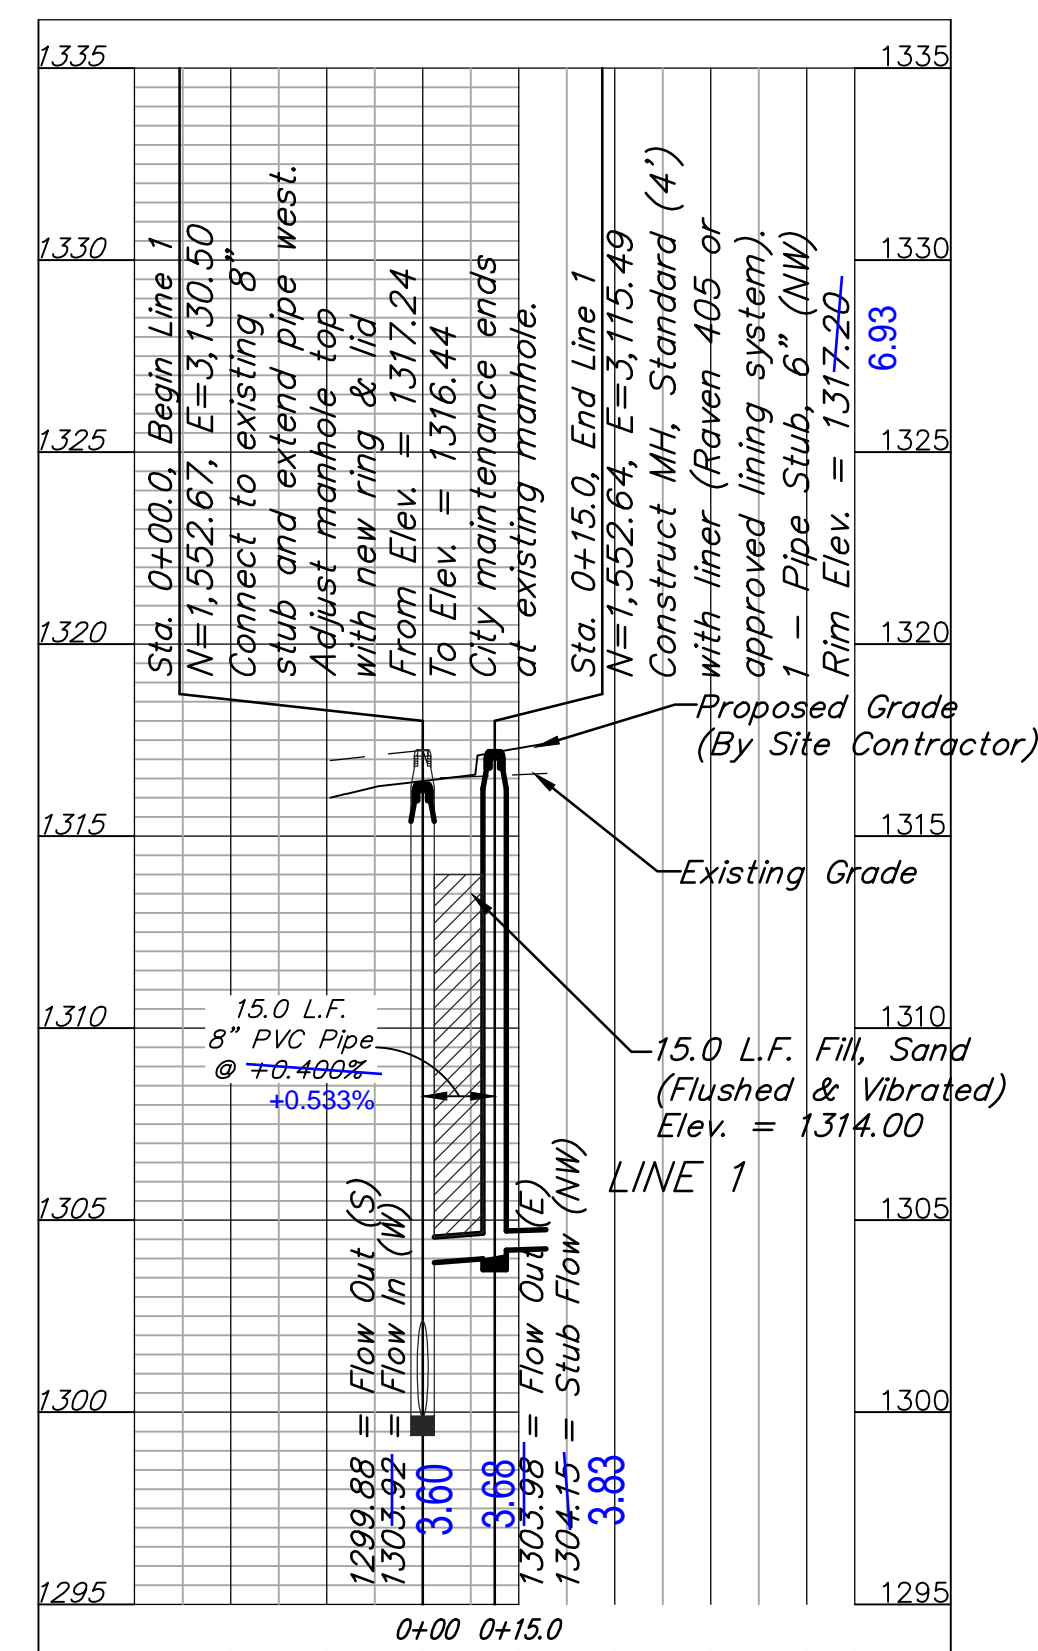 1335
1335
1330
1330
1325
1325
1320
1320
1315
1315
1310
1310
1305
1305
1300
1300
1295
1295
Sta. 0+00.0, Begin Line 1
N=1,552.67, E=3,130.50
Connect to existing 8"
stub and extend pipe west.
Adjust manhole top
with new ring & lid
From Elev. = 1317.24
To Elev. = 1316.44
City maintenance ends
at existing manhole.
Sta. 0+15.0, End Line 1
N=1,552.64, E=3,115.49
Construct MH, Standard (4')
with liner (Raven 405 or
approved lining system).
1 - Pipe Stub, 6" (NW)
Rim Elev. = 1317.20
6.93
Proposed Grade
(By Site Contractor)
Existing Grade
15.0 L.F.
8" PVC Pipe
@ +0.400%
+0.533%
15.0 L.F. Fill, Sand
(Flushed & Vibrated)
Elev. = 1314.00
LINE 1
1299.88 = Flow Out (S)
1303.92 = Flow In (W)
3.60
3.68
1303.98 = Flow Out (E)
1304.15 = Stub Flow (NW)
3.83
0+00 0+15.0